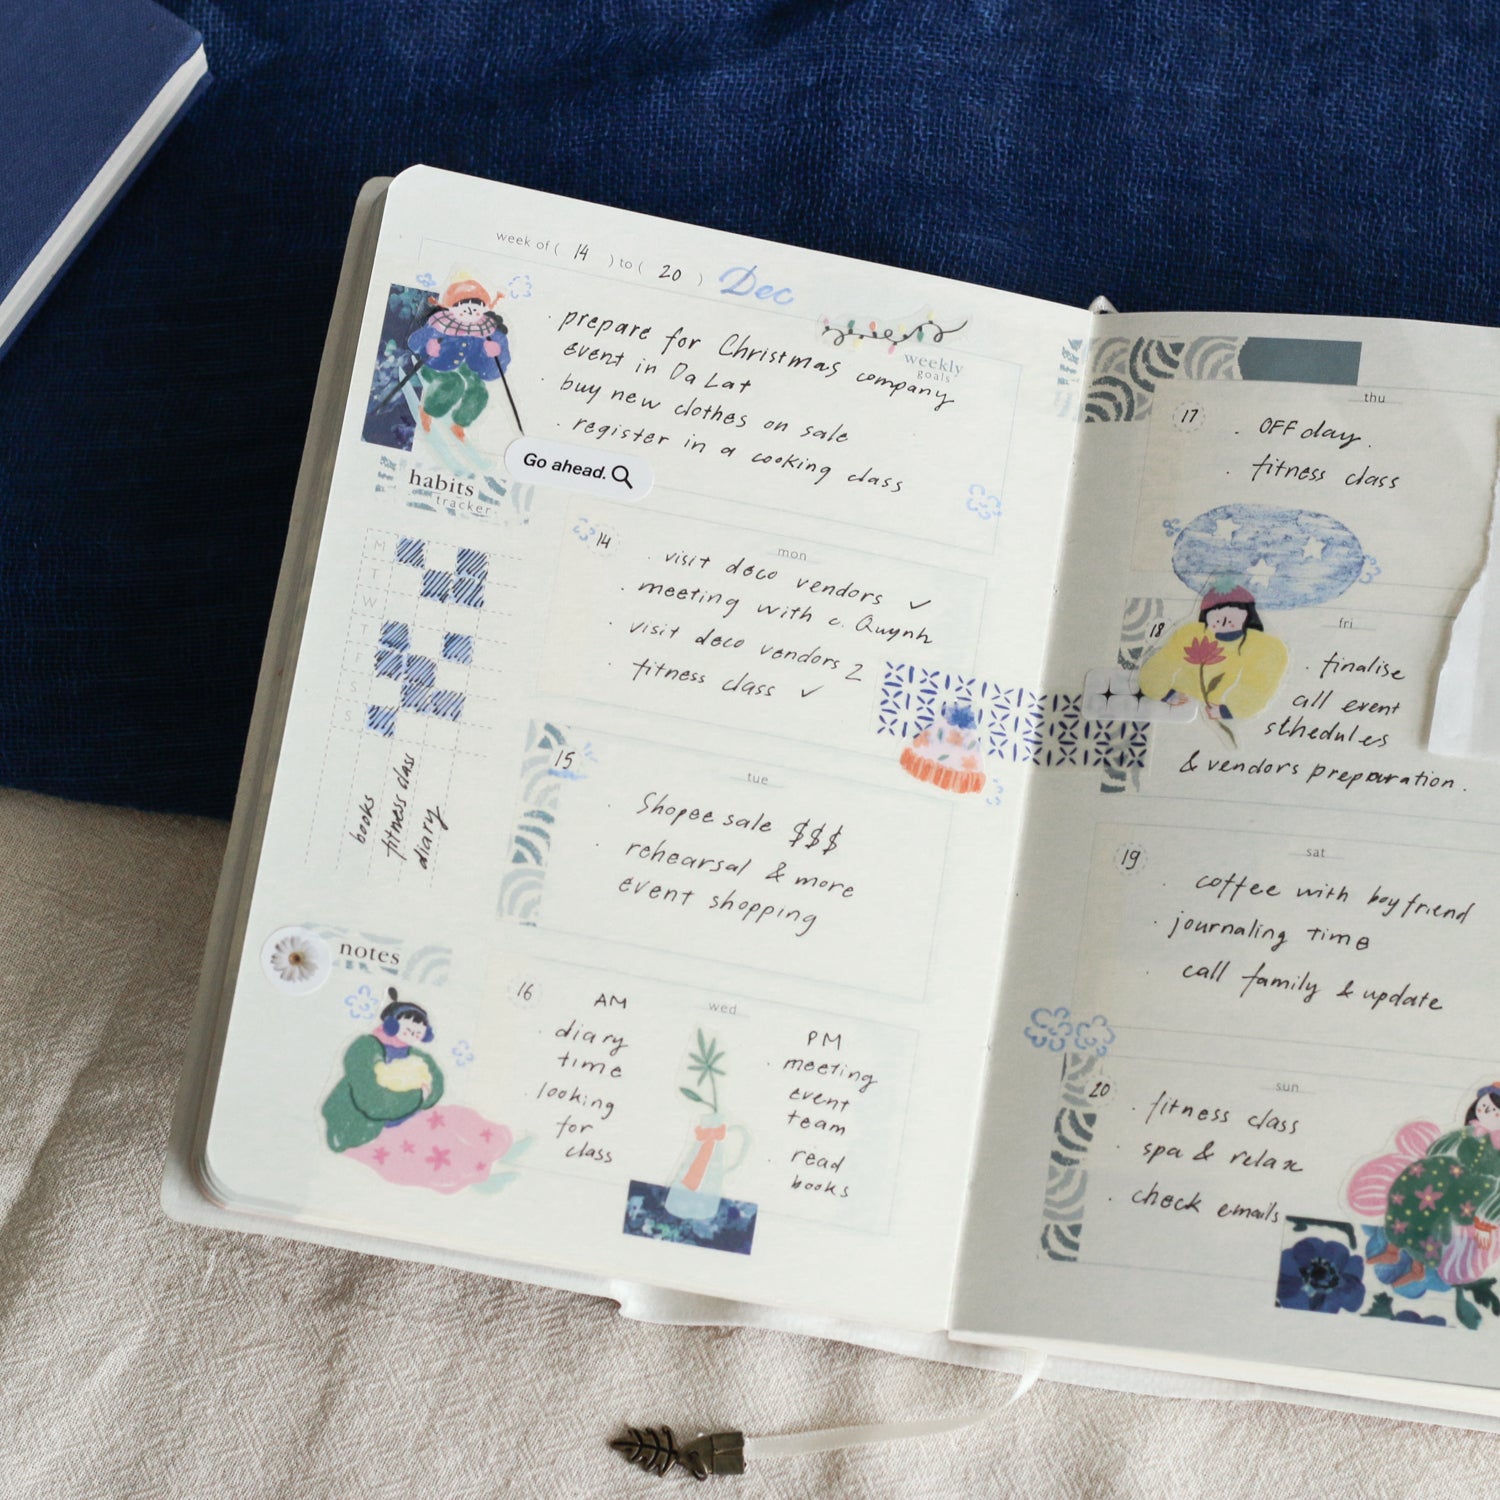 week of ( 14 ) to ( 20 ) Dec
weekly
goals
· prepare for Christmas company
event in Da Lat
· buy new clothes on sale
· register in a cooking class
Go ahead.
habits
tracker
M
T
W
T
F
S
S
books
fitness class
diary
notes
14
mon
· visit deco vendors ✓
· meeting with c. Quynh
· visit deco vendors 2
· fitness class ✓
15
tue
· Shopee sale $$$
· rehearsal & more
event shopping
16
wed
AM
· diary
time
· looking
for
class
PM
· meeting
event
team
· read
books
thu
17
· OFF day.
· fitness class
fri
18
· finalise
all event
schedules
& vendors preparation.
sat
19
· coffee with boyfriend
· journaling time
· call family & update
sun
20
· fitness class
· spa & relax
· check emails